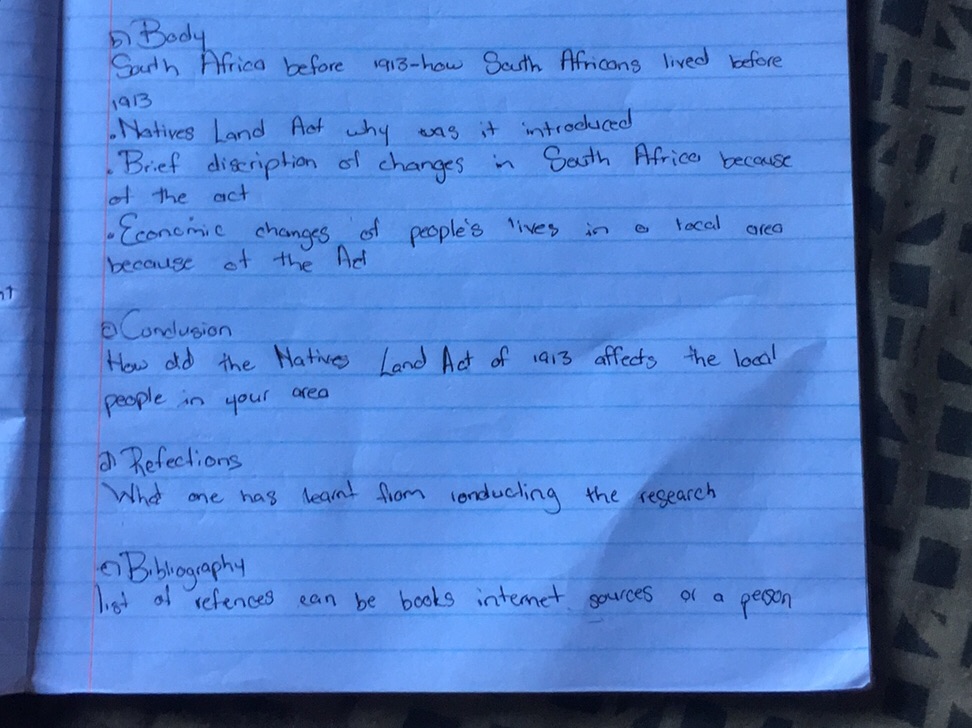 b) Body
South Africa before 1913-how South Africans lived before
1913
.Natives Land Act why was it introduced
.Brief discription of changes in South Africa because
of the act
.Economic changes of people's lives in a local area
because of the Act
c) Conclusion
How did the Natives Land Act of 1913 affects the local
people in your area
d) Refections
What one has learnt from conducting the research
e) Bibliography
list of refences can be books internet sources or a person